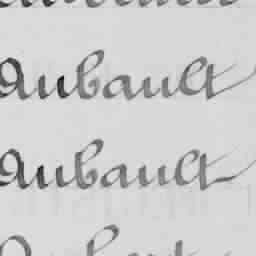 Aubault
Aubault